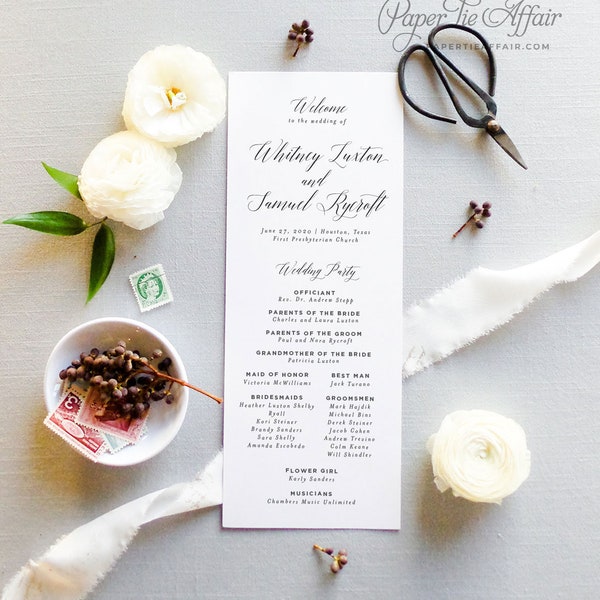 Paper Tie Affair
PAPERTIEAFFAIR.COM
Welcome
to the wedding of
Whitney Luxton
and
Samuel Rycroft
June 27, 2020 | Houston, Texas
First Presbyterian Church
Wedding Party
OFFICIANT
Rev. Dr. Andrew Stepp
PARENTS OF THE BRIDE
Charles and Laura Luxton
PARENTS OF THE GROOM
Paul and Nora Rycroft
GRANDMOTHER OF THE BRIDE
Patricia Luxton
MAID OF HONOR
Victoria McWilliams
BEST MAN
Jack Turano
BRIDESMAIDS
Heather Luxton Shelby
Ryall
Kori Steiner
Brandy Sanders
Sara Shelly
Amanda Escobedo
GROOMSMEN
Mark Hajdik
Michael Bins
Derek Steiner
Jacob Cohen
Andrew Trevino
Colm Keane
Will Shindler
FLOWER GIRL
Karly Sanders
MUSICIANS
Chambers Music Unlimited
3